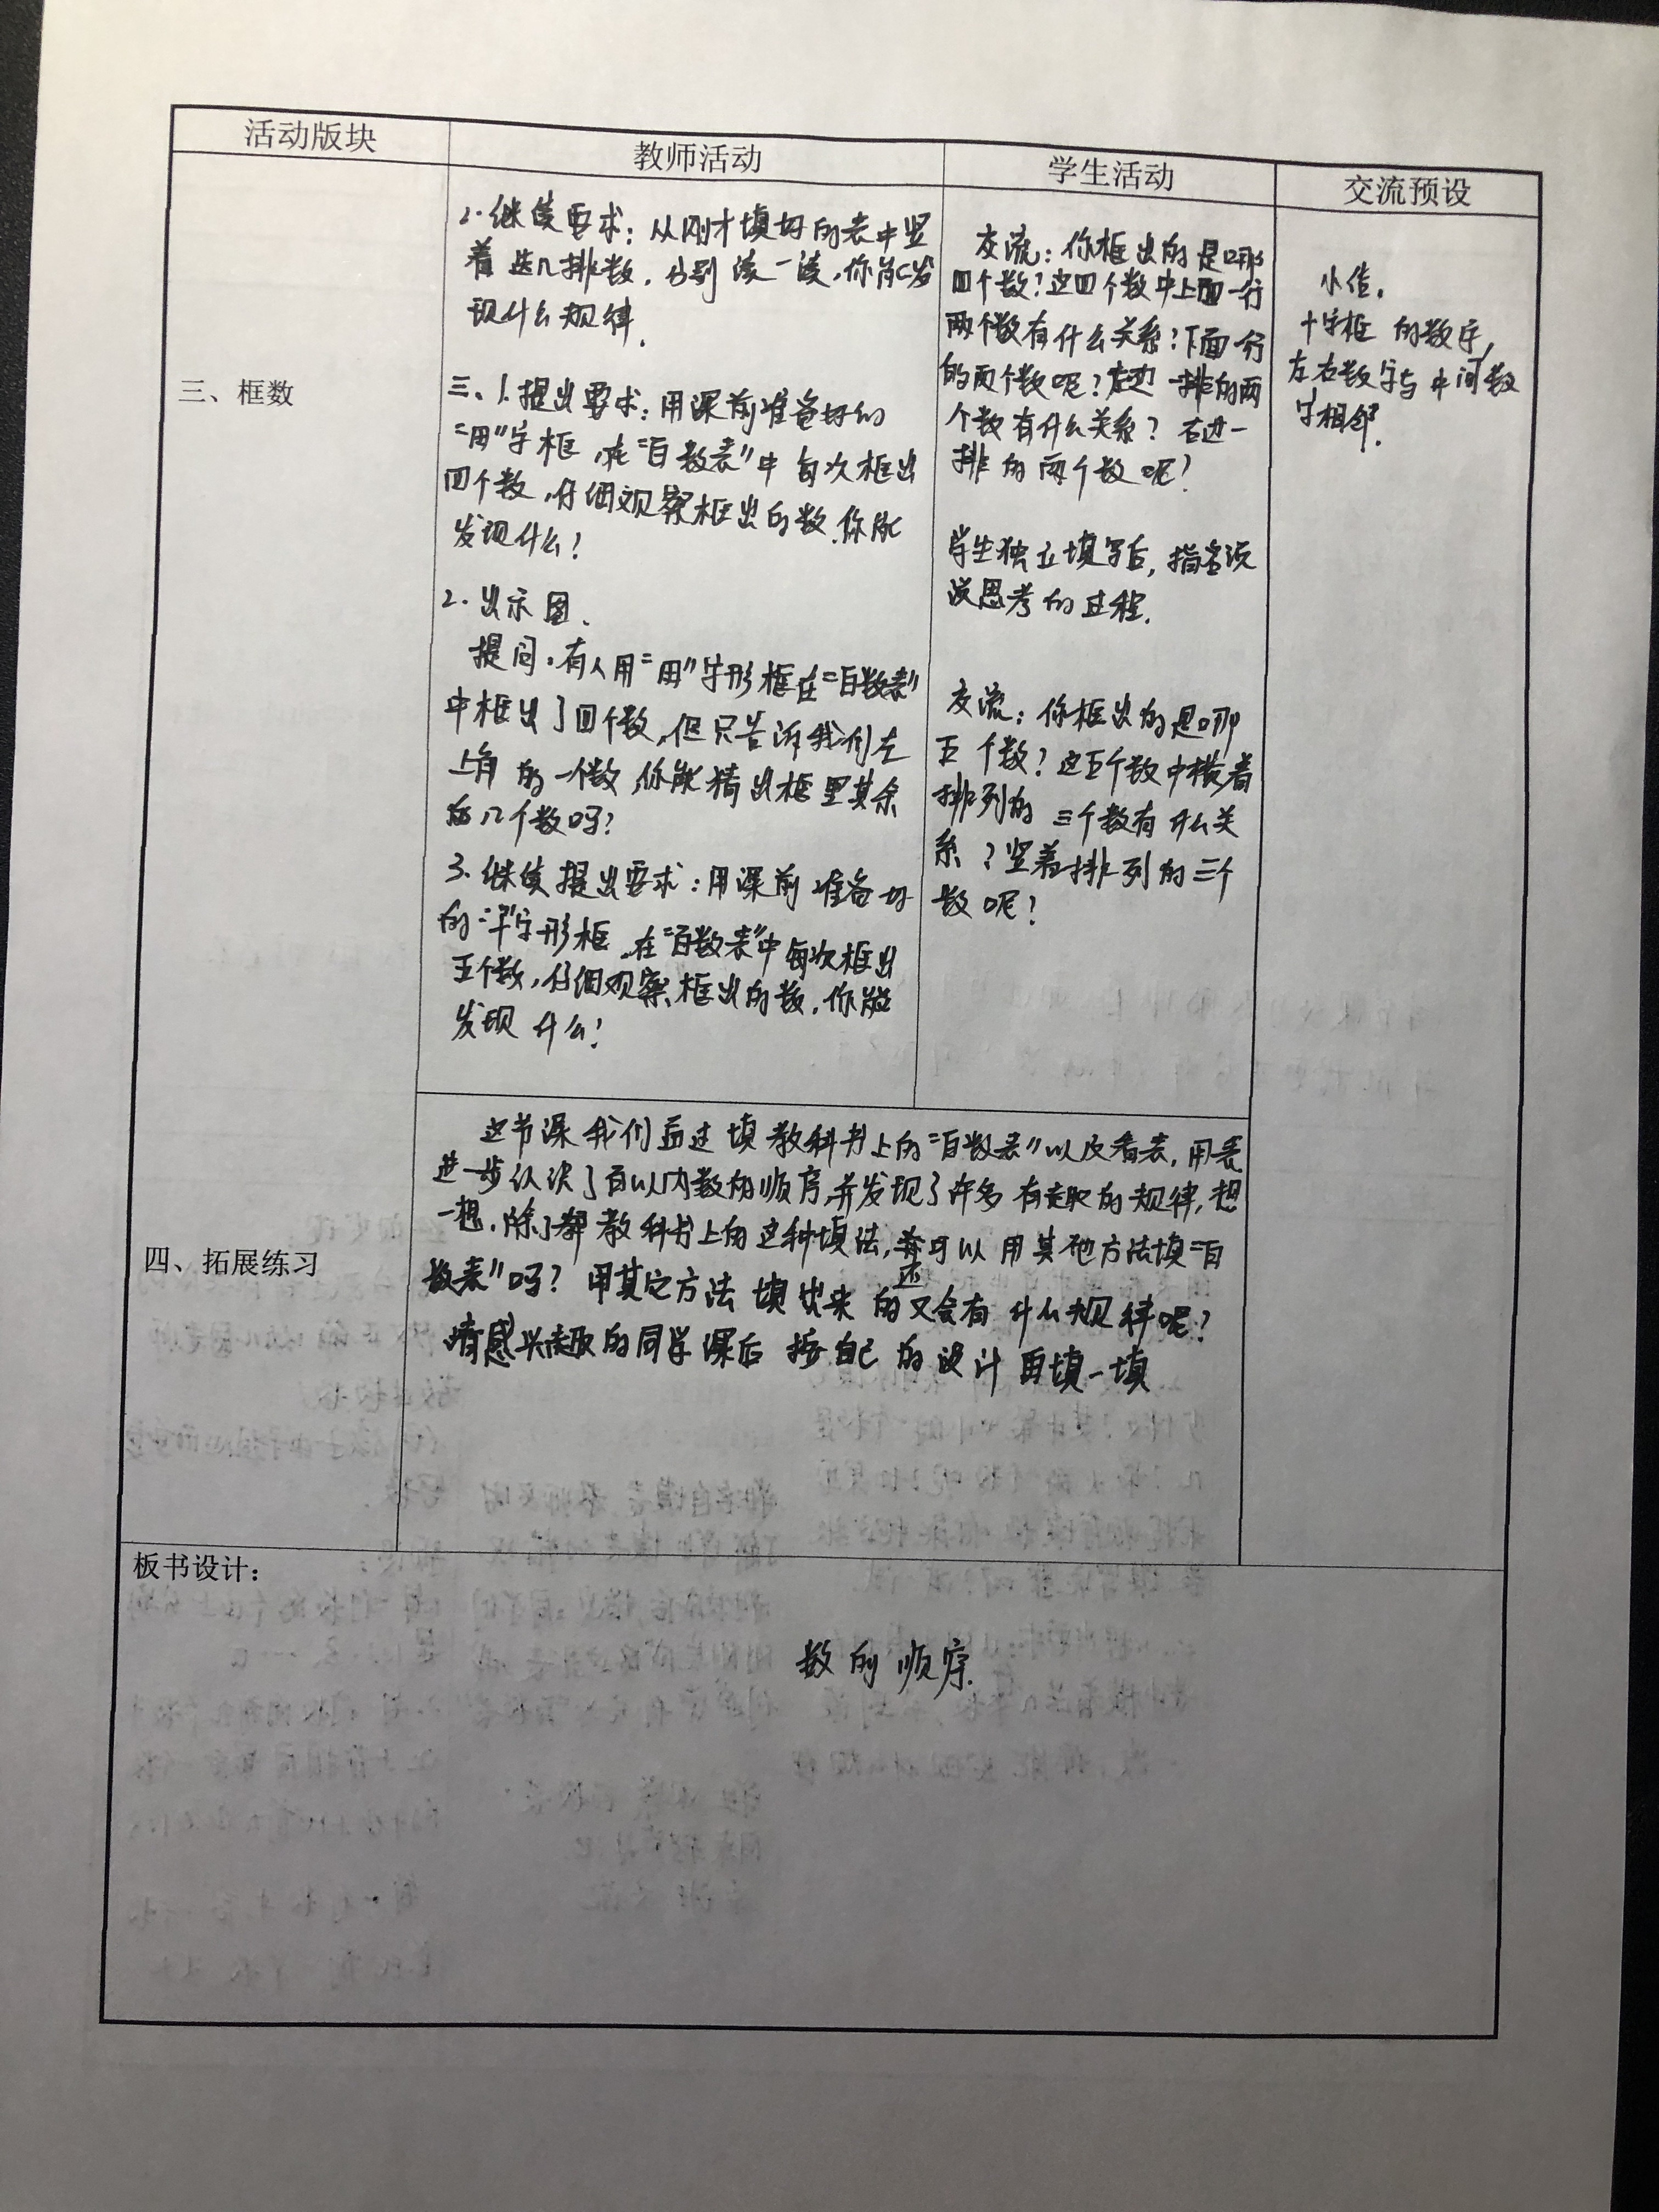 活动版块
教师活动
学生活动
交流预设
2.继续要求：从刚才填好的表中竖
着选几排数，分别读一读，你能发
现什么规律.
三、框数
三、1.提出要求：用课前准备好的
“田”字框，在“百数表”中每次框出
四个数，仔细观察框出的数，你能
发现什么？
2.出示图.
提问：有人用“田”字形框在“百数表”
中框出了四个数，但只告诉我们左
上角的一个数，你能猜出框里其余
的几个数吗？
3.继续提出要求：用课前准备好
的“十”字形框，在“百数表”中每次框出
五个数，仔细观察框出的数，你能
发现什么？
交流：你框出的是哪
四个数？这四个数中上面一行
两个数有什么关系？下面一行
的两个数呢？左边一排的两
个数有什么关系？右边一
排的两个数呢？
学生独立填写后，指名说
说思考的过程.
交流：你框出的是哪
五个数？这五个数中横着
排列的三个数有什么关
系？竖着排列的三个
数呢？
小结.
十字框的数字，
左右数字与中间数
字相邻.
四、拓展练习
这节课我们通过填教科书上的“百数表”以及看表，用表
进一步认识了百以内数的顺序，并发现了许多有趣的规律，想
一想，除了教科书上的这种填法，还可以用其他方法填“百
数表”吗？用其它方法填出来的又会有什么规律呢？
请感兴趣的同学课后按自己的设计再填一填
板书设计：
数的顺序.